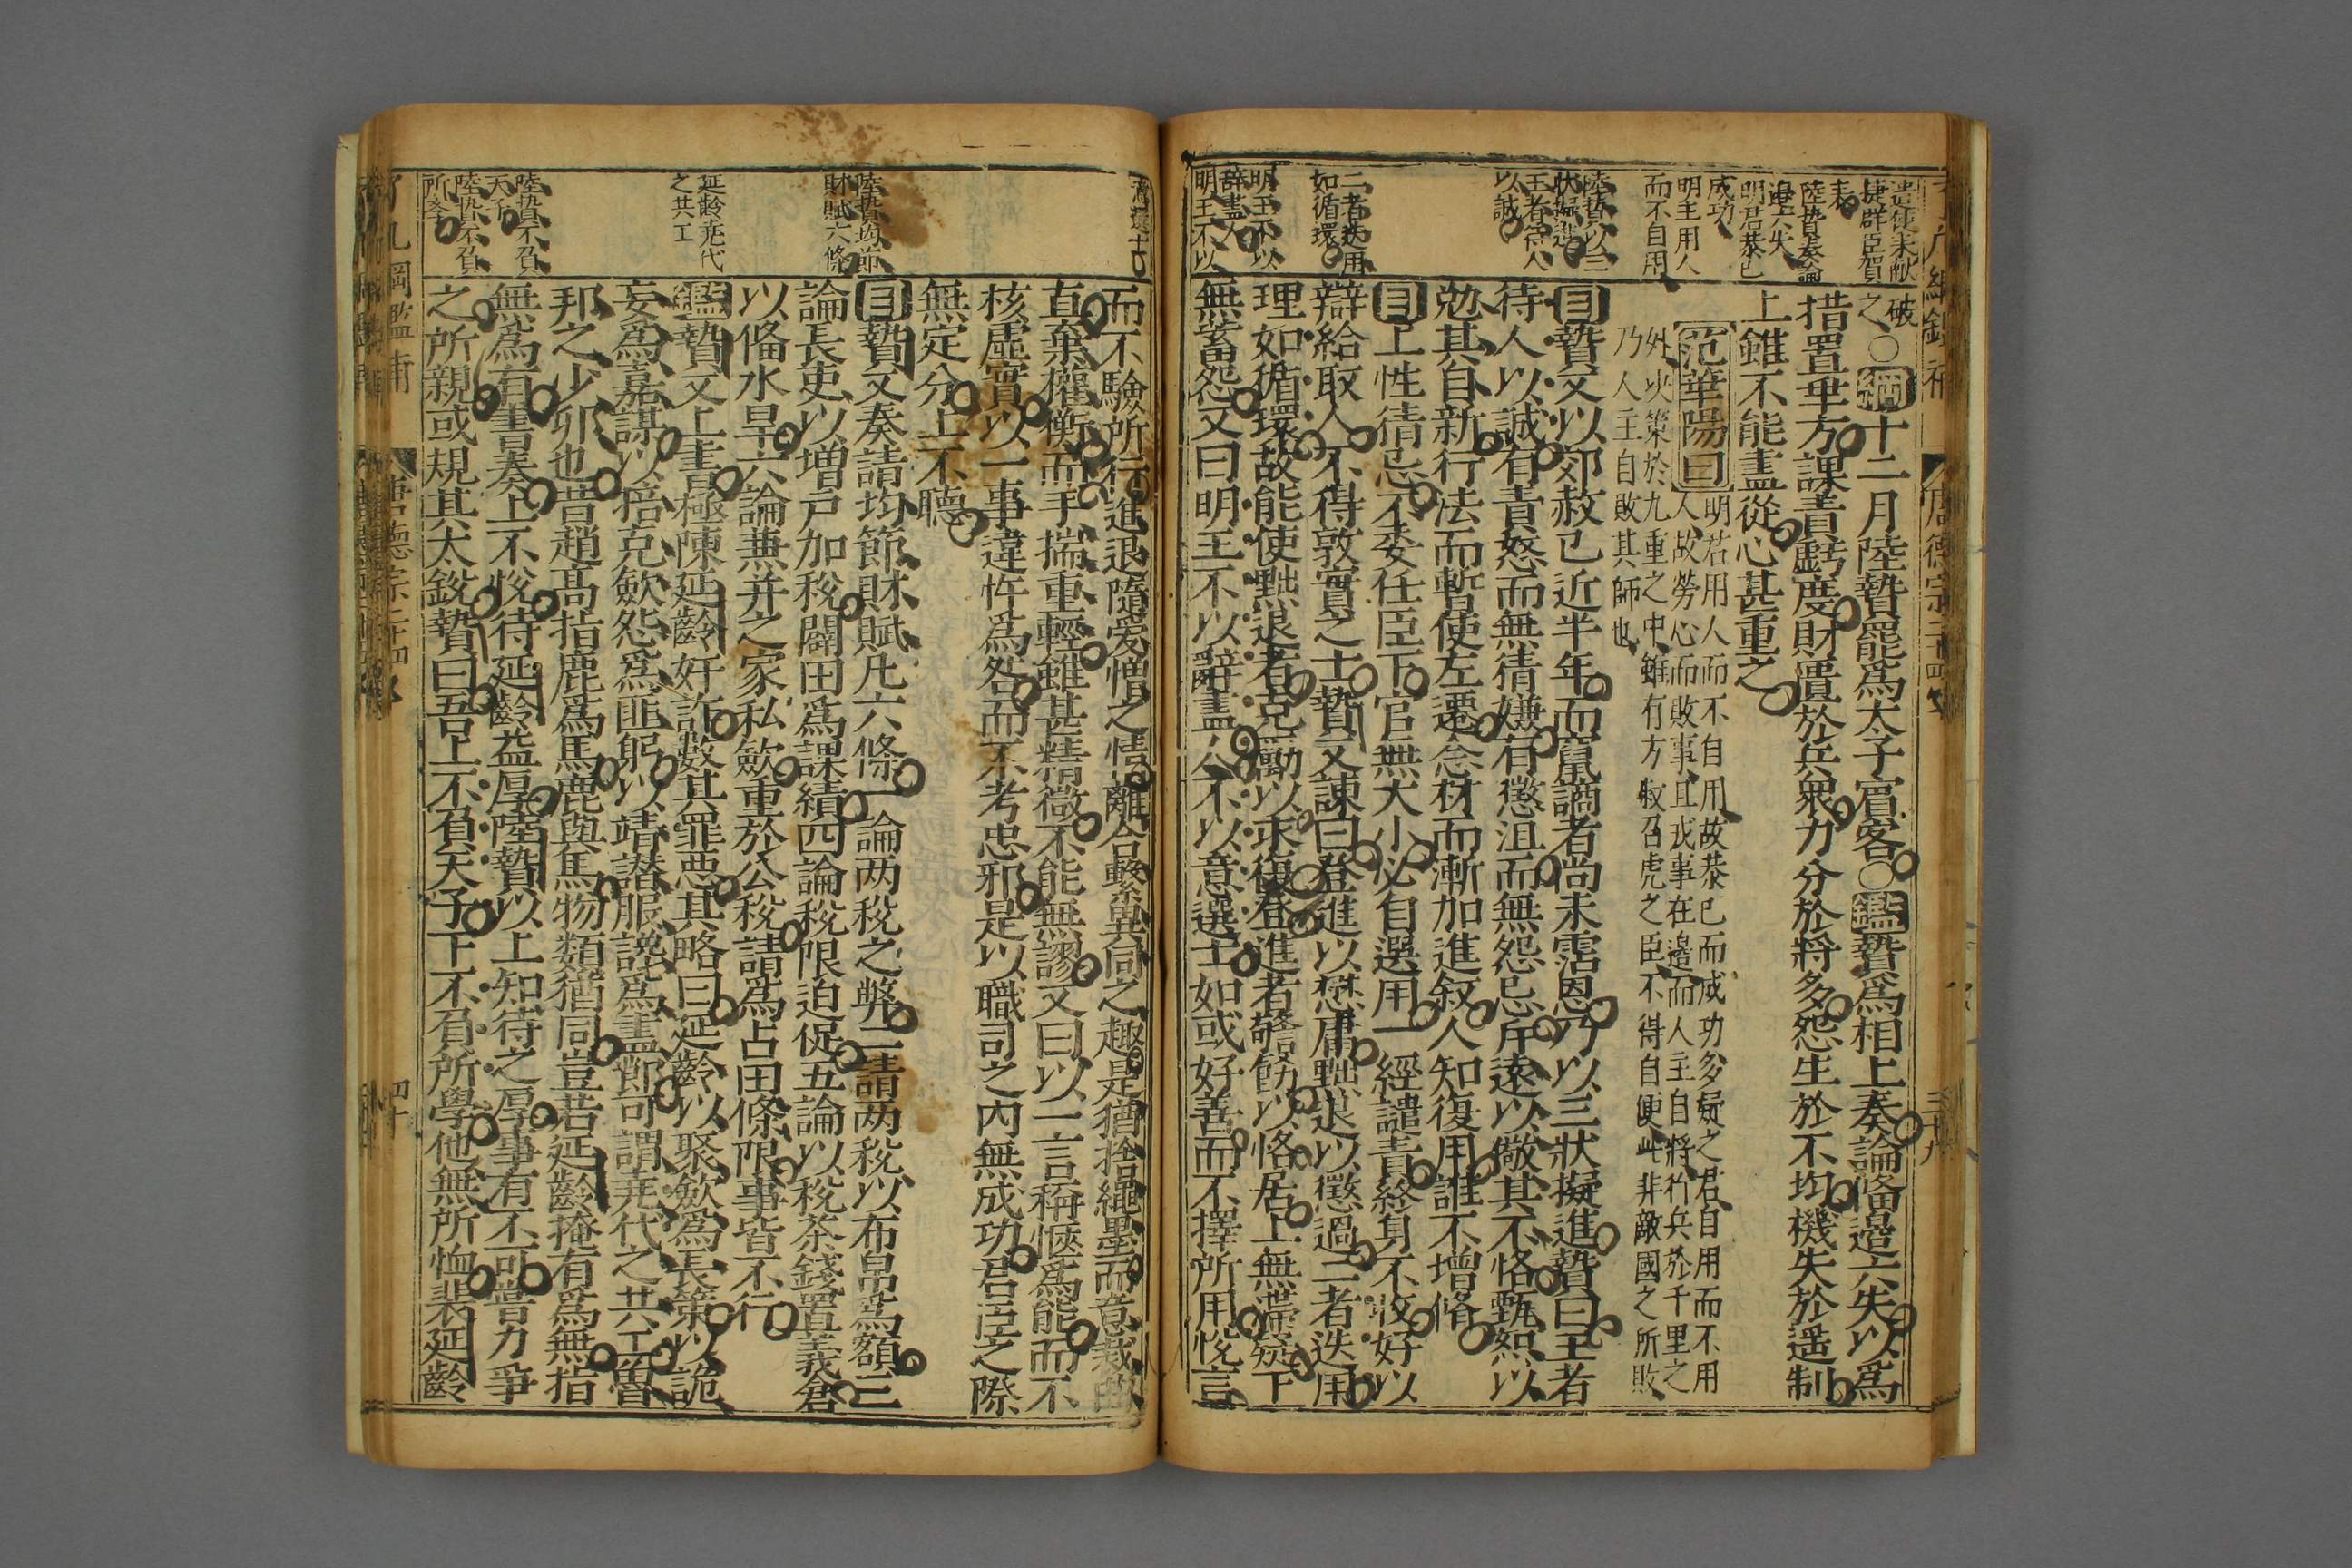 遣使來獻
捷群臣賀
陸贄奏論
邊六失
明君恭已
成功
明主用人
而不自用
陸贄以三
狀擬進
王者待人
以誠
二者迭用
如循環
明王不以
辭盡人
明王不以
破
之○綱十二月陸贄罷為太子賓客○鑑贄為相上奏論備邊六失以爲
措置乖方課責虧度財匱於兵衆力分於將多怨生於不均機失於遥制
上雖不能盡從心甚重之
范華陽曰
明君用人而不自用故恭已而成功多疑之君自用而不用
人故勞心而敗事且戎事在邉而人主自將於兵於千里之
外决策於九重之中雖有方叔召虎之臣不得自便此非敵國之所敗
乃人主自敗其師也
目贄又以郊赦已近半年而竄謫者尚未霑恩乃以三狀擬進贄曰王者
待人以誠有責怒而無猜嫌有懲沮而無怨忌斥遠以儆其不恪甄恕以
勉其自新行法而暫使左遷念材而漸加進叙人知復用誰不增脩
目上性猜忌不委任臣下官無大小必自選用一經譴責終身不收好以
辯給取人不得敦實之士贄又諫曰登進以懋庸黜退以懲過二者迭用
理如循環故能使黜退者克勵以求復登進者警飭以恪居上無滯疑下
無蓄怨又曰明王不以辭盡人不以意選士如或好善而不擇所用悅言
而不驗所行進退隨愛憎之情離合繫異同之趣是猶捨繩墨而意裁曲
直棄權衡而手揣重輕雖甚精微不能無謬又曰以一言稱愜爲能而不
核虛實以一事違忤爲咎而不考忠邪是以職司之內無成功君臣之際
無定分上不聽
目贄又奏請均節財賦凡六條一論两稅之弊二請两稅以布帛爲額三
論長吏以增戶加稅闢田爲課績四論稅限迫促五論以稅茶錢置義倉
以備水旱六論兼并之家私歛重於公稅請爲占田條限事皆不行
鑑贄又上書極陳延齡奸詐數其罪惡其略曰延齡以聚歛爲長策以詭
妄爲嘉謀以掊克歛怨爲匪躬以靖譖服讒爲盡節可謂堯代之共工魯
邦之少卯也昔趙高指鹿爲馬鹿與馬物類猶同豈若延齡掩有爲無指
無爲有書奏上不悅待延齡益厚陸贄以上知待之厚事有不可嘗力爭
之所親或規其太銳贄曰吾上不負天子下不負所學他無所恤裴延齡
陸贄均節
財賦六條
延齡堯代
之共工
陸贄不負
天子
陸贄不負
所學
唐德宗 二十四
四十